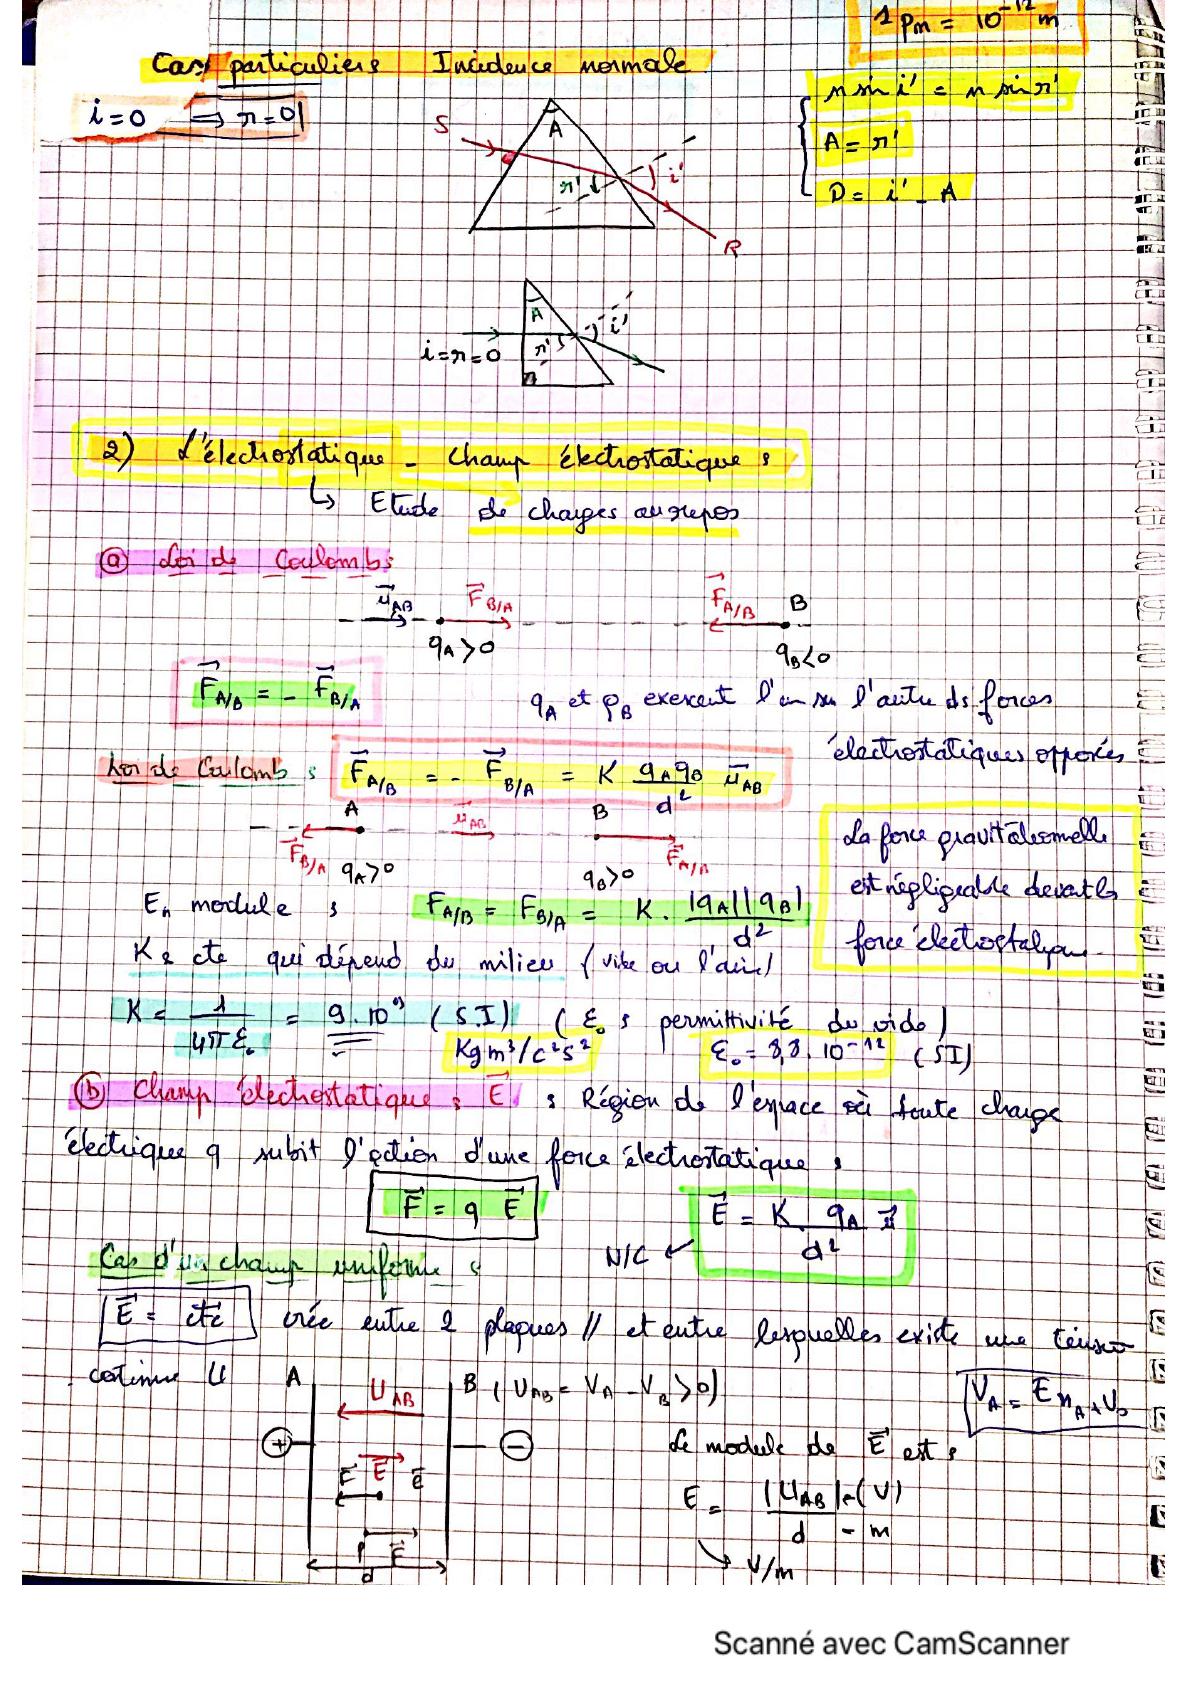 1 pm = 10⁻¹² m
Cas particuliers Incidence normale
i=0 ⟹ r=0
n sin i' = n sin r'
A = r'
D = i' - A
S
A
r'
i'
R
A
i'
i=r=0
r'
2) L'électrostatique - Champ électrostatique :
↳ Etude de charges au repos
ⓐ Loi de Coulomb :
u⃗_AB F⃗_B/A F⃗_A/B B
q_A>0 q_B<0
F⃗_A/B = - F⃗_B/A
q_A et q_B exercent l'un su l'autre ds forces
électrostatiques opposées
Loi de Coulomb : F⃗_A/B = - F⃗_B/A = K q_A q_B / d² u⃗_AB
A u⃗_AB B
F⃗_B/A q_A>0 q_B>0 F⃗_A/B
La force gravitationnelle
est négligeable devant la
force électrostatique
En module : F_A/B = F_B/A = K . |q_A||q_B| / d²
K : cte qui dépend du milieu (vide ou l'air)
K = 1 / 4πε₀ = 9.10⁹ (S.I) (ε₀ : permittivité du vide)
Kg m³/c²s² ε₀ = 8,8.10⁻¹² (SI)
ⓑ Champ électrostatique : E⃗ : Région de l'espace où toute charge
électrique q subit l'action d'une force électrostatique :
F⃗ = q E⃗
E⃗ = K . q_A / d² u⃗
N/C
Cas d'un champ uniforme :
E⃗ = cte crée entre 2 plaques // et entre lesquelles existe une tension
continue U A B (U_AB = V_A - V_B > 0)
V_A = E x_A + V_0
U_AB
+ -
Le module de E⃗ est :
F⃗ E⃗ e⃗
E = |U_AB| - (V) / d - m
P F⃗
d
V/m
Scanné avec CamScanner